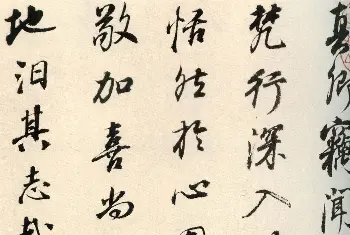 真卿竊聞
梵行深入
恬然於心固
敬加喜尚
地汩其志哉